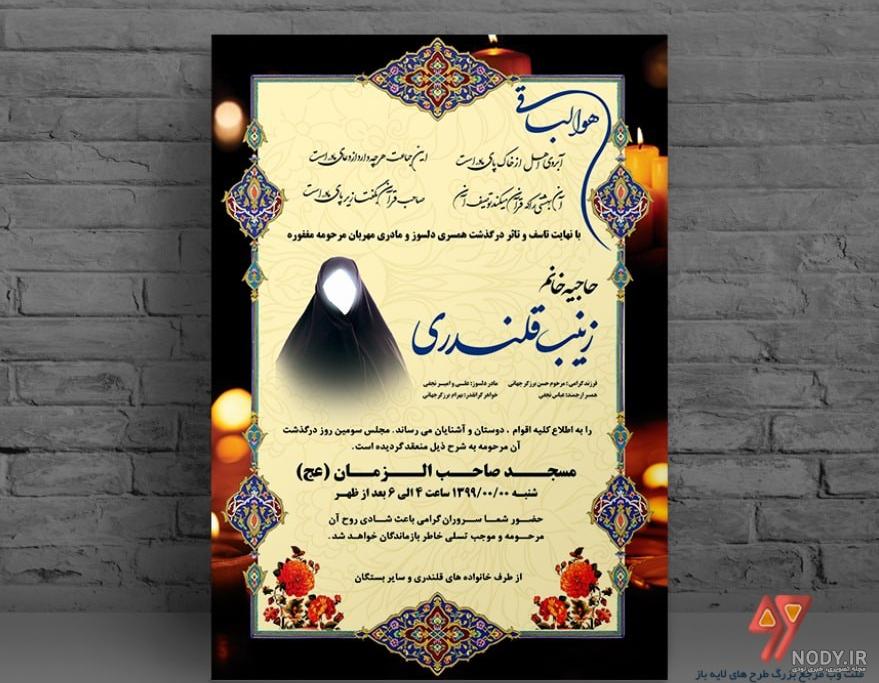 هوالباقی
آبروی اهل دل از خاک پای مادر است
این جماعت هرچه دارد از دعای مادر است
آن بهشتی را که قرآن میکند توصیف آن
صاحب قرآن بگفت زیر پای مادر است
با نهایت تاسف و تاثر درگذشت همسری دلسوز و مادری مهربان مرحومه مغفوره
حاجیه خانم
زینب قلندری
فرزند گرامی: مرحوم حسن برزگر جهانی
مادر دلسوز: علی و امیر نجفی
همسر ارجمند: عباس نجفی
خواهر گرانقدر: بهرام برزگر جهانی
را به اطلاع کلیه اقوام ، دوستان و آشنایان می رساند. مجلس سومین روز درگذشت
آن مرحومه به شرح ذیل منعقد گردیده است.
مسجد صاحب الزمان (عج)
شنبه ۱۳۹۹/۰۰/۰۰ ساعت ۴ الی ۶ بعد از ظهر
حضور شما سروران گرامی باعث شادی روح آن
مرحومه و موجب تسلی خاطر بازماندگان خواهد شد.
از طرف خانواده های قلندری و سایر بستگان
NODY.IR
مجله تصویری، خبری نودی
ملت وب مرجع بزرگ طرح های لایه باز